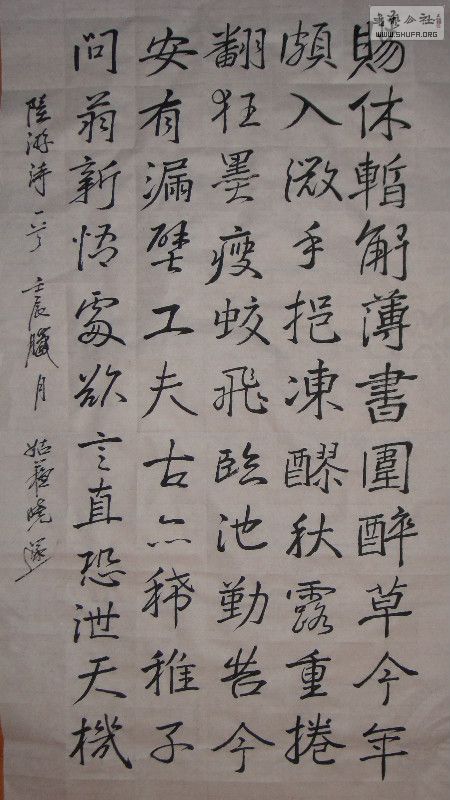 書藝公社
WWW.SHUFA.ORG
賜休暫解薄書圍醉草今年
頗入微手挹凍醪秋露重捲
翻狂墨瘦蛟飛臨池勤苦今
安有漏壁工夫古亦稀稚子
問翁新悟處欲言直恐泄天機
陸游詩一首 壬辰臘月 姑蘇曉